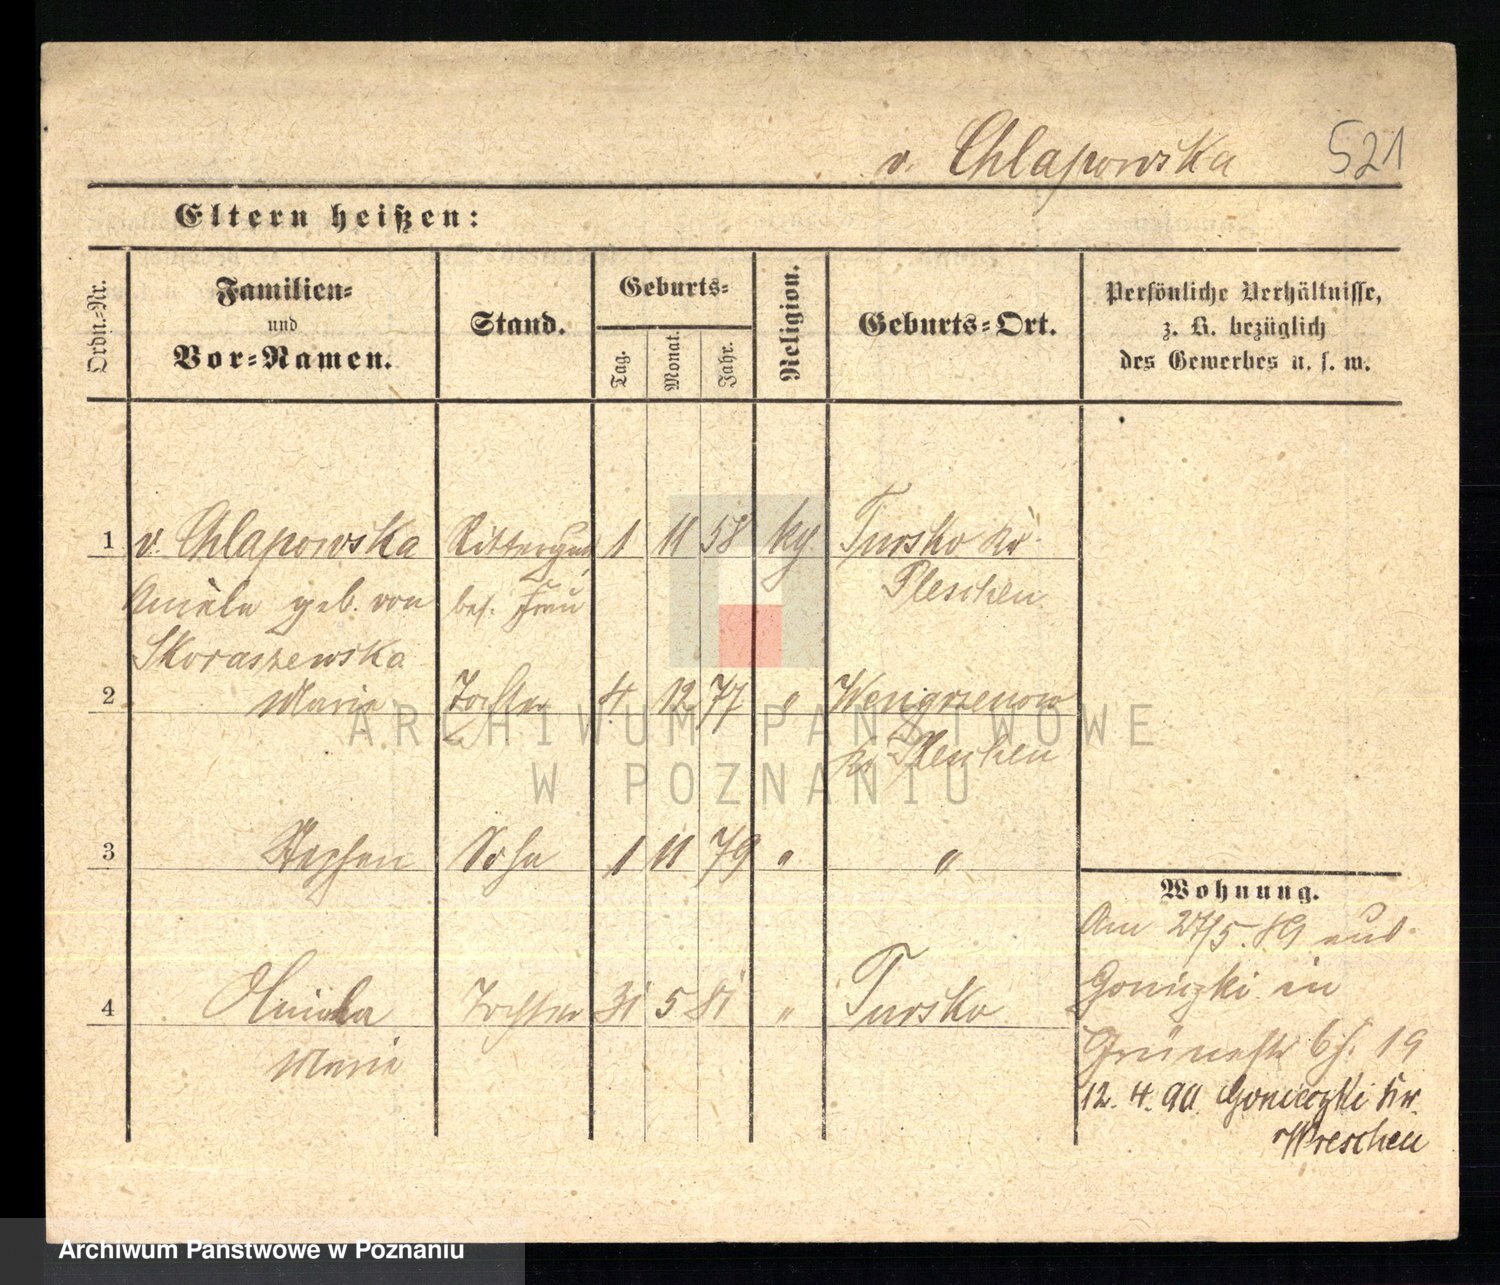 v. Chlapowska 521
Eltern heißen:
Ordn.-Nr. Familien- und Vor-Namen. Stand. Geburts- Tag. Monat. Jahr. Religion. Geburts-Ort. Persönliche Verhältnisse, z. B. bezüglich des Gewerbes u. s. w.
1 v. Chlapowska Rittergut 1 11 58 kg Tursko Kr
geb. von bes. Frau Pleschen
Skoraszewska
2 Marie Tochter 4 12 77 " Wengrzenow
Kr Pleschen
3 Stephan Sohn 1 11 79 " "
Wohnung.
Am 27/5. 89 aus
Goniczki in
4 Tochter 31 5 81 " Tursko
Marie
Grünestr 6 19
12. 4. 90 Goniczki Kr.
Wreschen
ARCHIWUM PAŃSTWOWE
W POZNANIU
Archiwum Państwowe w Poznaniu